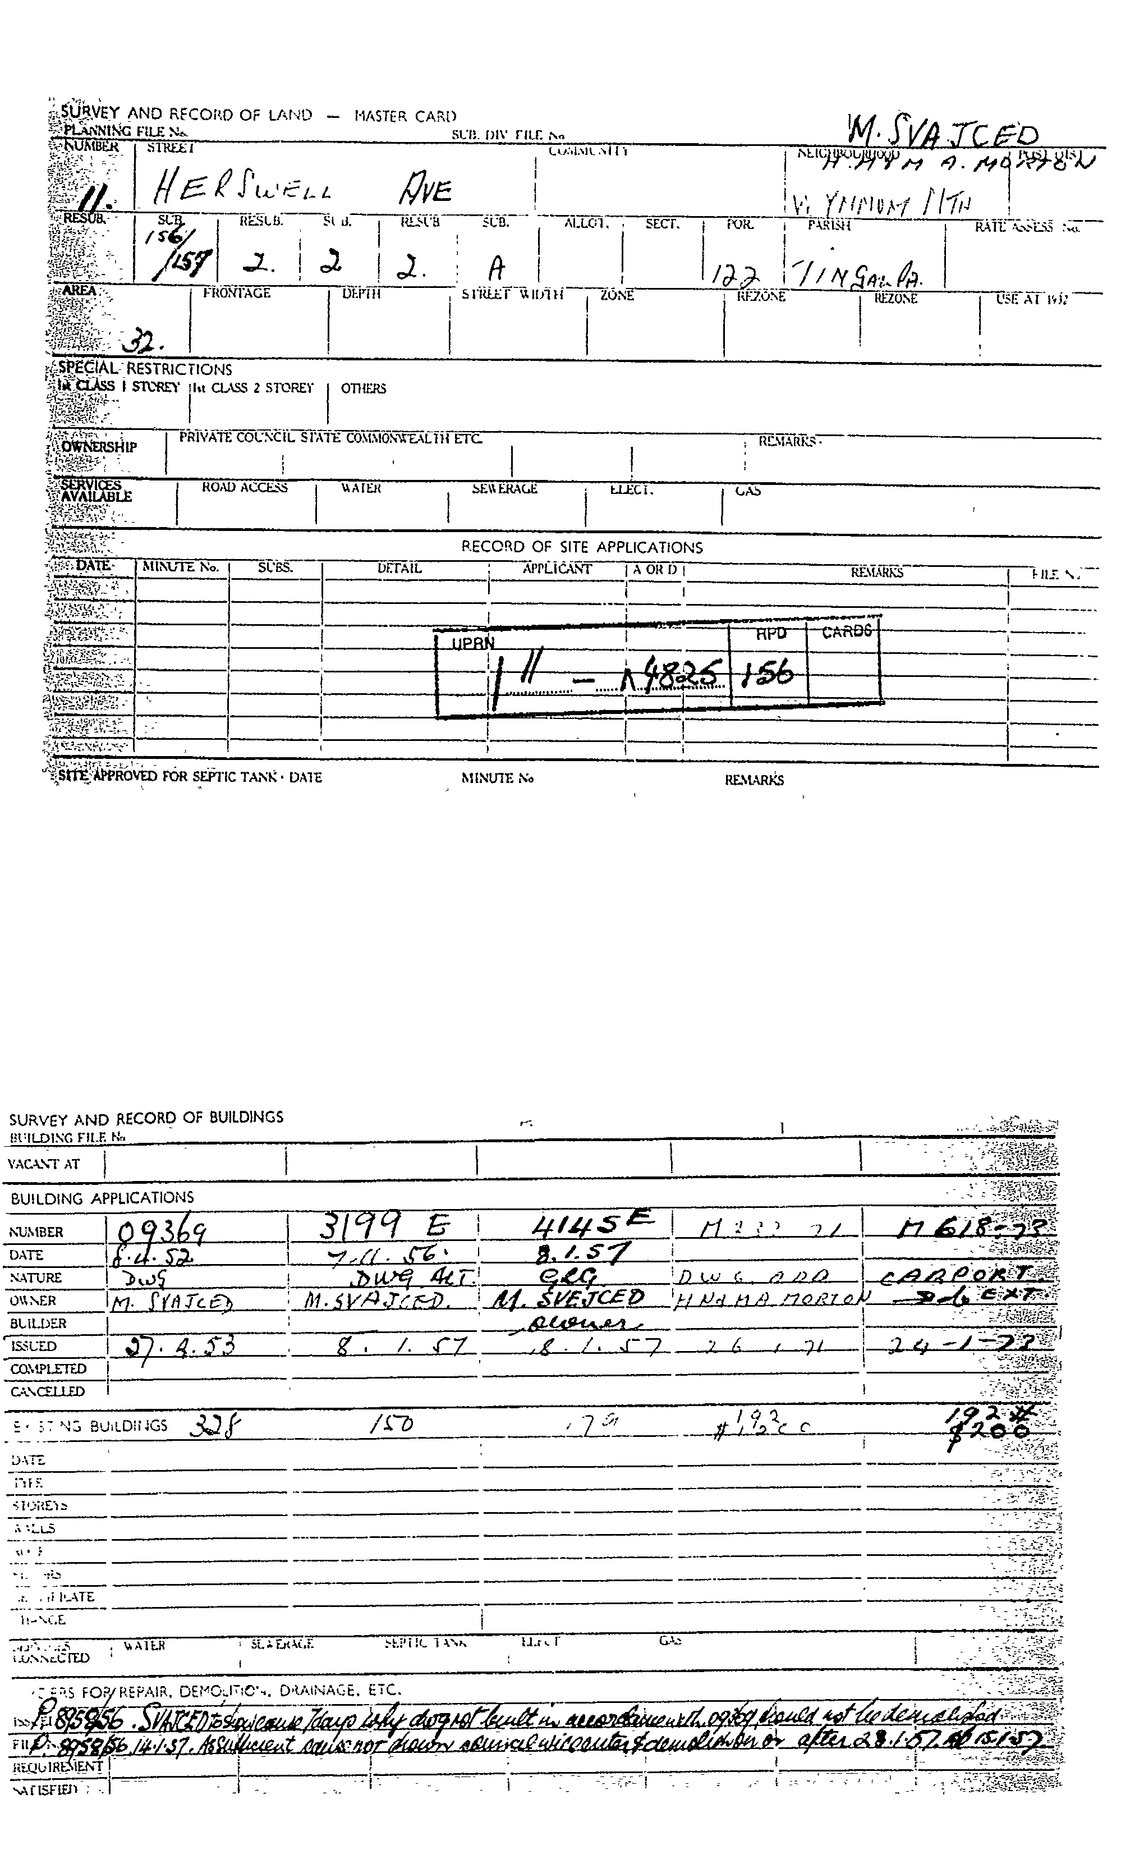 SURVEY AND RECORD OF LAND — MASTER CARD
PLANNING FILE No. SUB. DIV. FILE No M. SVAJCED
NUMBER STREET COMMUNITY NEIGHBOURHOOD
H. M. A. MORTON
11. HERSWELL AVE
RESUB. SUB. RESUB. SUB. RESUB SUB. ALLOT. SECT. POR. PARISH RATE ASSESS No.
156/
/157 2. 2 2. A 122 TINGALPA.
AREA FRONTAGE DEPTH STREET WIDTH ZONE REZONE REZONE USE AT
32.
SPECIAL RESTRICTIONS
1st CLASS 1 STOREY 1st CLASS 2 STOREY OTHERS
OWNERSHIP PRIVATE COUNCIL STATE COMMONWEALTH ETC. REMARKS.
SERVICES AVAILABLE ROAD ACCESS WATER SEWERAGE ELECT. GAS
RECORD OF SITE APPLICATIONS
DATE MINUTE No. SUBS. DETAIL APPLICANT A OR D REMARKS FILE
UPRN RPD CARDS
11 — 4825 156
SITE APPROVED FOR SEPTIC TANK · DATE MINUTE No REMARKS
SURVEY AND RECORD OF BUILDINGS
BUILDING FILE No
VACANT AT
BUILDING APPLICATIONS
NUMBER 09369 3199 E 4145E M 71 M 618-73
DATE 8.4.52 7.11.56. 8.1.57
NATURE DWG DWG ALT. GRG DWG ADD CARPORT
OWNER M. SVAJCED M. SVAJCED. M. SVEJCED H N & M A MORTON EXT
BUILDER owner
ISSUED 8.1.57 8.1.57 24-1-73
COMPLETED
CANCELLED
EXISTING BUILDINGS 328 150 192
$200
DATE
TYPE
STOREYS
WALLS
WATER SEWERAGE SEPTIC TANK ELECT GAS
CONNECTED
FOR REPAIR, DEMOLITION, DRAINAGE, ETC.
P. 8958/56. SVAJCED to show cause 7 days why dwg not built in accordance with 09369 should not be demolished
P. 8958/56 14.1.57. As sufficient cause not shown council will enter & demolish on or after 28.1.57 15.1.57
REQUIREMENT
SATISFIED